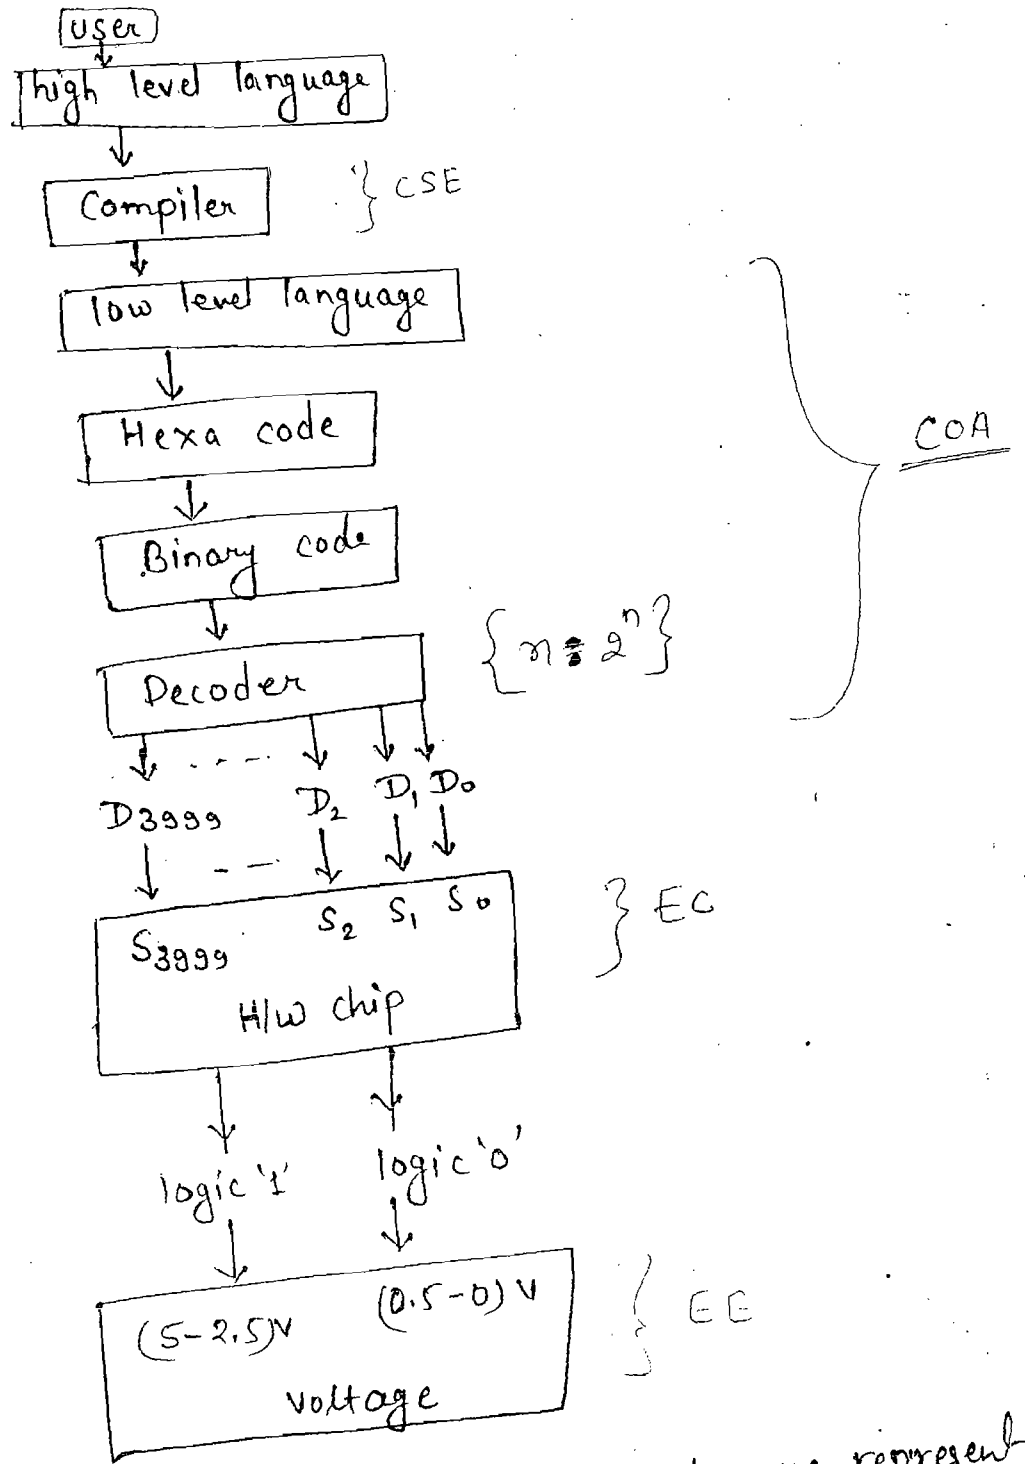 user
high level language
Compiler
} CSE
low level language
Hexa code
COA
Binary code
Decoder
{n : 2ⁿ}
D3999 .... D₂ D₁ D₀
S3999 -- S₂ S₁ S₀
} EC
H/W chip
logic '1' logic '0'
(5-2.5)V (0.5-0) V
} EE
voltage
represent